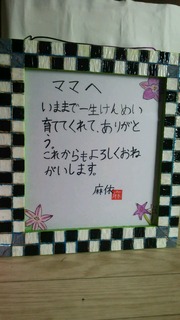 ママへ
いままで一生けんめい
育ててくれて、ありがと
う。
これからもよろしくおね
がいします。
麻佑